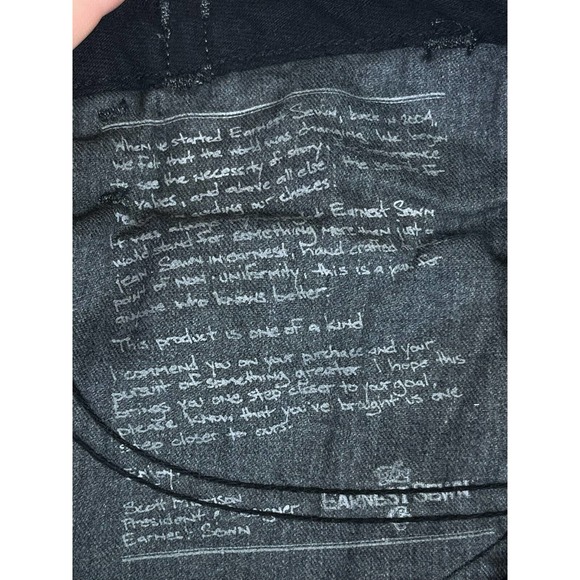 When we started Earnest Sewn, back in 2004,
We felt that the world was changing. We began
to see the necessity of story,
values, and above all else, the search for
our choices.
It was Earnest Sewn
would stand for something more than just a
jean. Sewn in earnest, hand crafted
point of non-uniformity, this is a jean for
anyone who knows better.
This product is one of a kind
I commend you on your purchase and your
pursuit of something greater. I hope this
brings you one step closer to your goal,
please know that you've brought us one
step closer to ours.
Enjoy.
Scott Morrison
President Designer
Earnest Sewn
EARNEST SEWN